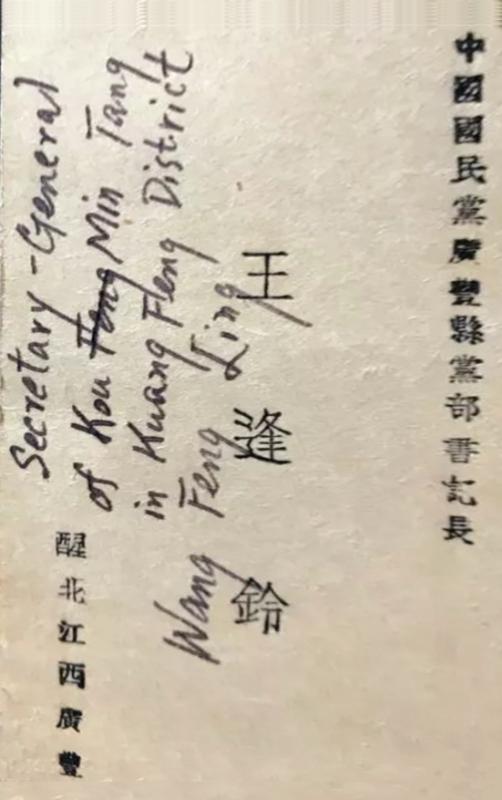 中國國民黨廣豐縣黨部書記長
王逢鈴
醒北江西廣豐
Secretary-General
of Kou Min Tang
in Kuang Feng District
Wang Feng Ling